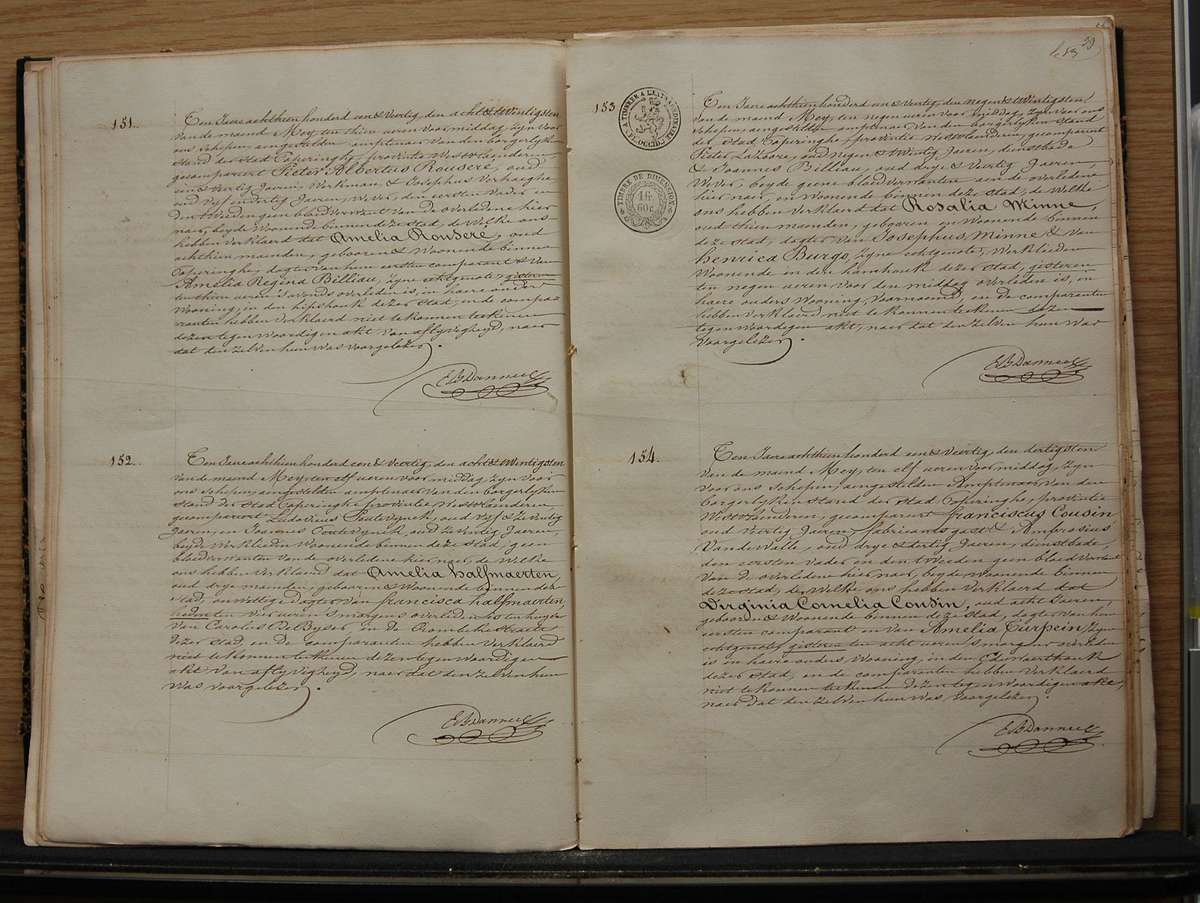 151.
Ten Jaere achthien honderd een & Veertig, den acht & twintigsten
van de maend Mey, ten thien ueren voor middag, zyn voor
ons Schepen aengestelden amptenaer van den borgerlyken
stand der stad Poperinghe, provintie Westvlaenderen,
gecompareert Pieter Albertus Rousere, oud
een & Veertig Jaeren, Werkman, & Josephus Verhaeghe
oud Vyf en dertig Jaeren, Wever, den eersten Vader en
den tweeden geen bloedverwant van de overledene hier
naer, beyde Woonende binnen deze Stad, de Welke ons
hebben Verklaerd dat Amelia Rousere, oud
achthien maenden, gebooren & Woonende binnen
Poperinghe, dogter van hun eersten comparant & van
Amelia Regina Billiau, zyne echtgenote, gisteren
ten thien ueren s'avonds overleden is, in haere ouders
Wooning, in den hipshoek dezer Stad, en de compa-
ranten hebben Verklaerd niet te konnen teekenen
dezen tegenwoordigen akt van aflyvigheyd, naer
dat den zelven hun was voorgelezen.
152.
Ten Jaere achthien honderd een & Veertig, den acht & twintigsten
van de maend Mey, ten elf ueren voor middag, zyn voor
ons Schepen aengestelden amptenaer van den borgerlyken
stand der Stad Poperinghe, provintie Westvlaenderen
gecompareert Ludovicus Outtevynck, oud Vyf & Zeventig
Jaeren, en Joannes Outtevynck, oud Zeventig Jaeren,
beyde Werklieden Woonende binnen deze stad, geen
bloedverwanten van de overledene hier naer, de Welke
ons hebben Verklaerd dat Amelia halfmaerten,
oud drye maenden, gebooren & Woonende binnen deze
stad, onwettige dogter van francisca halfmaerten,
hedent Vier ueren s'morgens overleden is ten huyze
van Carolus De Byser in de Bommbekestraete
dezer Stad, en de comparanten hebben Verklaerd
niet te konnen teekenen dezen tegenwoordigen
akt van aflyvigheyd, naer dat den zelven hun
was voorgelezen.
153
Ten Jaere achthien honderd een & Veertig, den negen & twintigsten
van de maend Mey, ten negen ueren voor middag, zyn voor ons
Schepen aengestelden amptenaer van den borgerlyken stand
der stad Poperinghe, provintie Westvlaenderen, gecompareert
Pieter Lahoore, oud Negen & twintig Jaeren, dienstbode
& Joannes Billiau, oud drye & Veertig Jaeren,
Wever, beyde geene bloedverwanten aen de overledene
hier naer, en Woonende binnen deze stad, de Welke
ons hebben Verklaerd dat Rosalia Minne,
oud thien maenden, gebooren en Woonende binnen
deze Stad, dogter van Josephus Minne & van
henrica Burgo, zyne echtgenote, Werklieden
Woonende in den hanhoek dezer stad, gisteren
ten negen ueren voor den middag overleden is, in
haere ouders Wooning, voornoemd, en de comparanten
hebben Verklaerd niet te konnen teekenen dezen
tegenwoordigen akt, naer dat den zelven hun was
voorgelezen.
TIMBRE DE DIMENSION
60c
154.
Ten Jaere achthien honderd een & Veertig, den dertigsten
van de maend Mey, ten elf ueren voor middag, zyn
voor ons Schepen aengestelden Amptenaer van den
borgerlyken stand der stad Poperinghe, provintie
Westvlaenderen, gecompareert franciscus Cousin
oud Veertig Jaeren, & Ambrosius
VandeWalle, oud drye & dertig Jaeren, dienstbode,
den eersten vader en den tweeden geen bloedverwant
van de overledene hier naer, beyde woonende binnen
deze stad, de Welke ons hebben Verklaerd dat
Virginia Cornelia Cousin, oud acht Jaeren,
gebooren & Woonende binnen deze Stad, dogter van hun
eersten comparant en van Amelia Turpein, zyne
echtgenote, gisteren ten acht ueren s'morgens overleden
is in haere ouders Wooning, in den
dezer stad, en de comparanten hebben Verklaerd
niet te konnen teekenen dezen tegenwoordigen akt,
naer dat den zelven hun was voorgelezen.